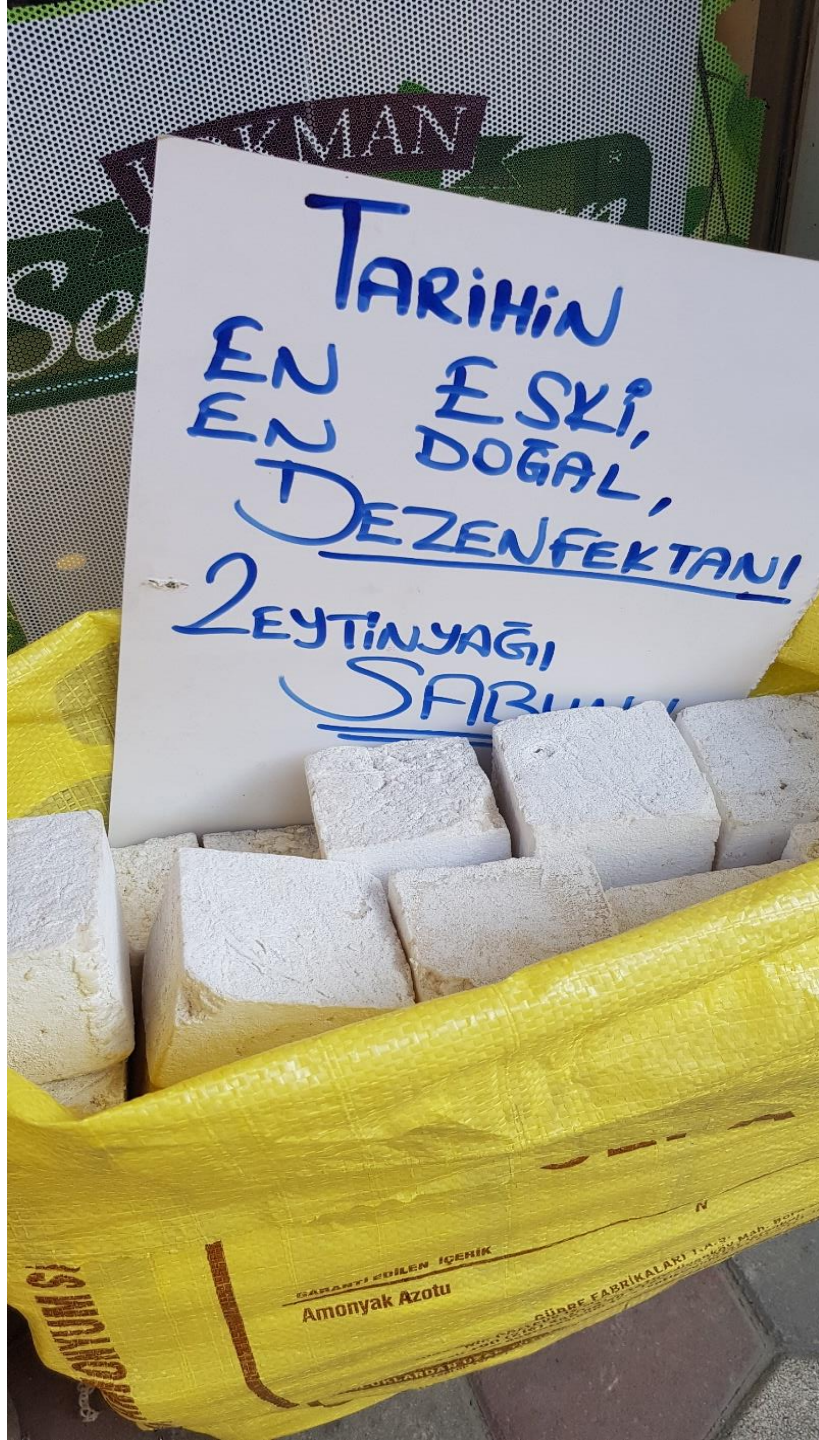 TARİHİN
EN ESKİ,
EN DOĞAL,
DEZENFEKTANI
ZEYTİNYAĞI
SABUNU
GARANTİ EDİLEN İÇERİK
N
Amonyak Azotu
GÜBRE FABRİKALARI T.A.Ş.